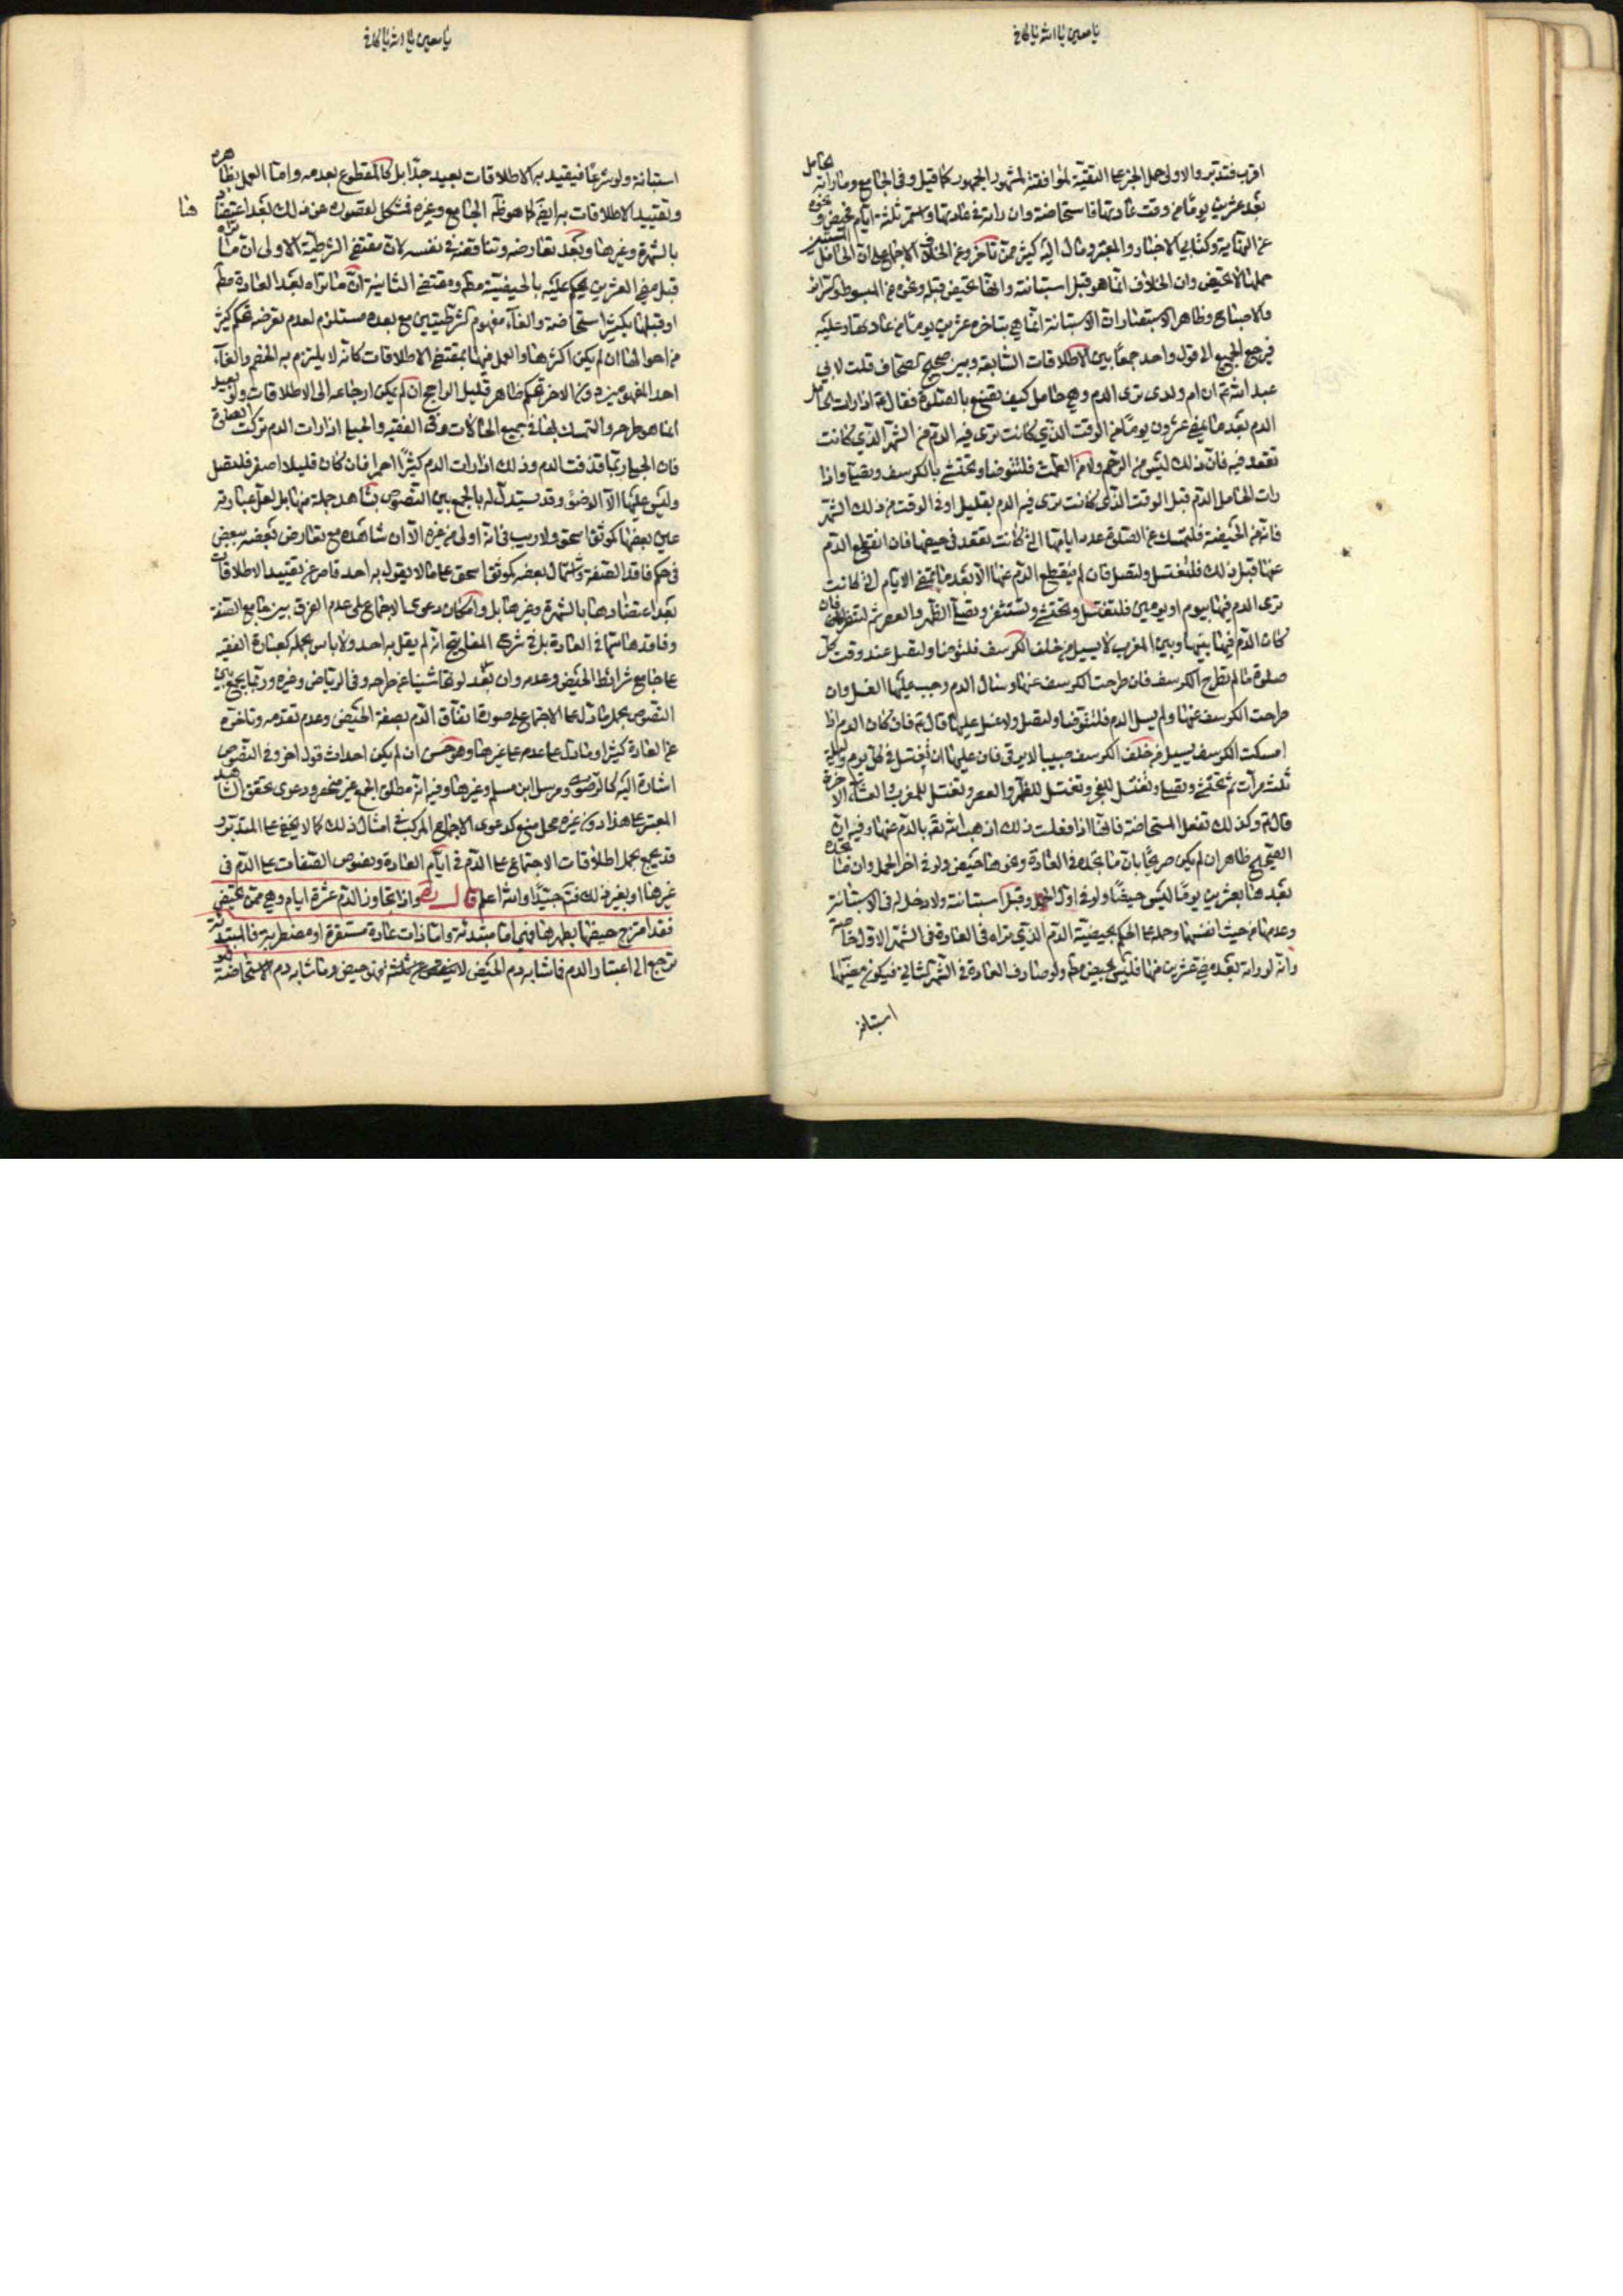 يا معين يا الله يا كافي
اقرب فتدبر والاولى حمل الخبر على التقية لموافقته لمشهور الجمهور كما قيل وفي الجامع وما راته الحامل
بعد عشرين يوما من وقت عادتها فاستحاضة وان راته في عادتها واستمر ثلثة ايام فحيض ونحوه
عن النهاية وكتابي الاخبار والمعتبر ومال اليه كثير ممن تاخر وعن الخلاف الاجماع على ان الحامل المستبين
حملها لا تحيض وان الخلاف انما هو قبل استبانته وانها تحيض قبله ونحوه من المبسوط
والاصباح وظاهر ان الاستبانة انما هي بتاخره عشرين يوما من عادتها وعليه
فيرجع الجميع الى قول واحد جمعا بين الاطلاقات السابقة وبين صحيح الصحاف قلت لابي
عبد الله ع ان ام ولدي ترى الدم وهي حامل كيف تصنع بالصلوة فقال ع اذا رات الحامل
الدم بعد ما يمضي عشرون يوما من الوقت الذي كانت ترى فيه الدم من الشهر الذي كانت
تقعد فيه فان ذلك ليس من الرحم ولا من الطمث فلتتوضا وتحتشي بالكرسف وتصلي واذا
رات الحامل الدم قبل الوقت الذي كانت ترى فيه الدم بقليل او في الوقت من ذلك الشهر
فانه من الحيضة فلتمسك عن الصلوة عدد ايامها التي كانت تقعد في حيضها فان انقطع الدم
عنها قبل ذلك فلتغتسل ولتصل فان لم ينقطع الدم عنها الا بعد ما تمضي الايام التي كانت
ترى الدم فيها بيوم او يومين فلتغتسل وتحتشي وتستثفر وتصلي الظهر والعصر ثم لتنظر فان
كان الدم فيما بينها وبين المغرب لا يسيل من خلف الكرسف فلتتوضا ولتصل عند وقت كل
صلوة ما لم تطرح الكرسف فان طرحت الكرسف عنها وسال الدم وجب عليها الغسل وان
طرحت الكرسف عنها ولم يسل الدم فلتتوضا ولتصل ولا غسل عليها قال ع فان كان الدم اذا
امسكت الكرسف يسيل من خلف الكرسف صبيبا لا يرقى فان عليها ان تغتسل في كل يوم وليلة
ثلث مرات ثم تحتشي وتصلي وتغتسل للفجر وتغتسل للظهر والعصر وتغتسل للمغرب والعشاء الاخرة
قال ع وكذلك تفعل المستحاضة فانها اذا فعلت ذلك اذهب الله تع بالدم عنها وفيه ان
الصحيح ظاهر ان لم يكن صريحا بان ما تجده في العادة ونحوها حيض ولو في اخر الحمل وان ما تجده
بعدها بعشرين يوما ليس حيضا ولو في اول الحمل وقبل استبانته ولا دخل له في الاستبانة
وعدمها من حيث انفسها وحمله على الحكم بحيضية الدم الذي تراه في العادة في الشهر الاول خاصة
وانه لو راته بعده في عشرين منها فليس بحيض مط ولو صادف العادة في الشهر الثاني فيكون مضيها
استبانة
يا معين يا الله يا كافي
استبانة ولو شرعا فيقيد به الاطلاقات بعيد جدا بل كالمقطوع بعدمه واما العمل بظاهره
وتقييد الاطلاقات به ايضا كما هو ظ الجامع وغيره فمشكل لقصوره عن ذلك بعد اعتضادها
بالشهرة وغيرها وبعد تعارضه وتناقضه في نفسه لان مقتضى الشرطية الاولى ان ما تراه
قبل مضي العشرين يحكم عليه بالحيضية مط ومقتضى الثانية ان ما تراه بعد العادة مط
او قبلها بكثير استحاضة والغاء مفهوم الشرطيتين مع بعده مستلزم لعدم تعرضه لحكم كثير
من احوالها ان لم يكن اكثرها والعمل فيها بمقتضى الاطلاقات كانه لا يلتزم به الخصم والغاء
احد المفهومين دون الاخر تحكم ظاهر قليل الراجح ان لم يكن ارجاعه الى الاطلاقات ولو بعيد
انما هو طرحه والتمسك بها في جميع الحالات وفي الفقيه والحبلى اذا رات الدم تركت الصلوة
فان الحبلى ربما قذفت الدم وذلك اذا رات الدم كثيرا احمر فان كان قليلا اصفر فلتصل
وليس عليها الا الوضوء وقد يستدل له بالجمع بين النصوص بشاهد جملة منها بل لعل عبارته
عين بعضها كموثق اسحق ولا ريب في انه اولى من غيره الا ان شاهده مع تعارض بعضه ببعض
في حكم فاقد الصفة واشتمال بعضه كموثق اسحق على ما لا يقول به احد قاصر عن تقييد الاطلاقات
بعد اعتضادها بالشهرة وغيرها بل وامكان دعوى الاجماع على عدم الفرق بين جامع الصفة
وفاقدها سيما في العادة بل في شرح المفاتيح انه لم يقل به احد ولا باس بحمله كعبارة الفقيه
على جامع شرائط الحيض وعدمه وان بعد لونها شيئا عن طرحه وفي الرياض وغيره وربما يجمع بين
النصوص بحمل ما دل على الاجتماع على صورة اتفاق الدم بصفة الحيض وعدم تقدمه وتاخره
عن العادة كثيرا وما دل على عدمه على غيرها وهو حسن ان لم يكن احداث قول اخر وفي النصوص
اشارة اليه كالرضوي ومرسل ابن مسلم وغيرها وفيه انه مطلق الجمع غير منحصر ودعوى تحقق الشاهد
المعتبر على هذا دون غيره محل منع كدعوى الاجماع المركب في امثال ذلك كما لا يخفى على المتدبر و
قد يجمع بحمل اطلاقات الاجتماع على الدم في ايام العادة ونصوص الصفات على الدم في
غيرها او بغير ذلك فتم جيدا والله اعلم قال ره واذا تجاوز الدم عشرة ايام وهي ممن تحيض
فقد امتزج حيضها بطهرها فهي اما مبتدئة واما ذات عادة مستقرة او مضطربة فالمبتدئة
ترجع الى اعتبار الدم فما شابه دم الحيض لا ينقص عن ثلثة فهو حيض وما شابه دم الاستحاضة